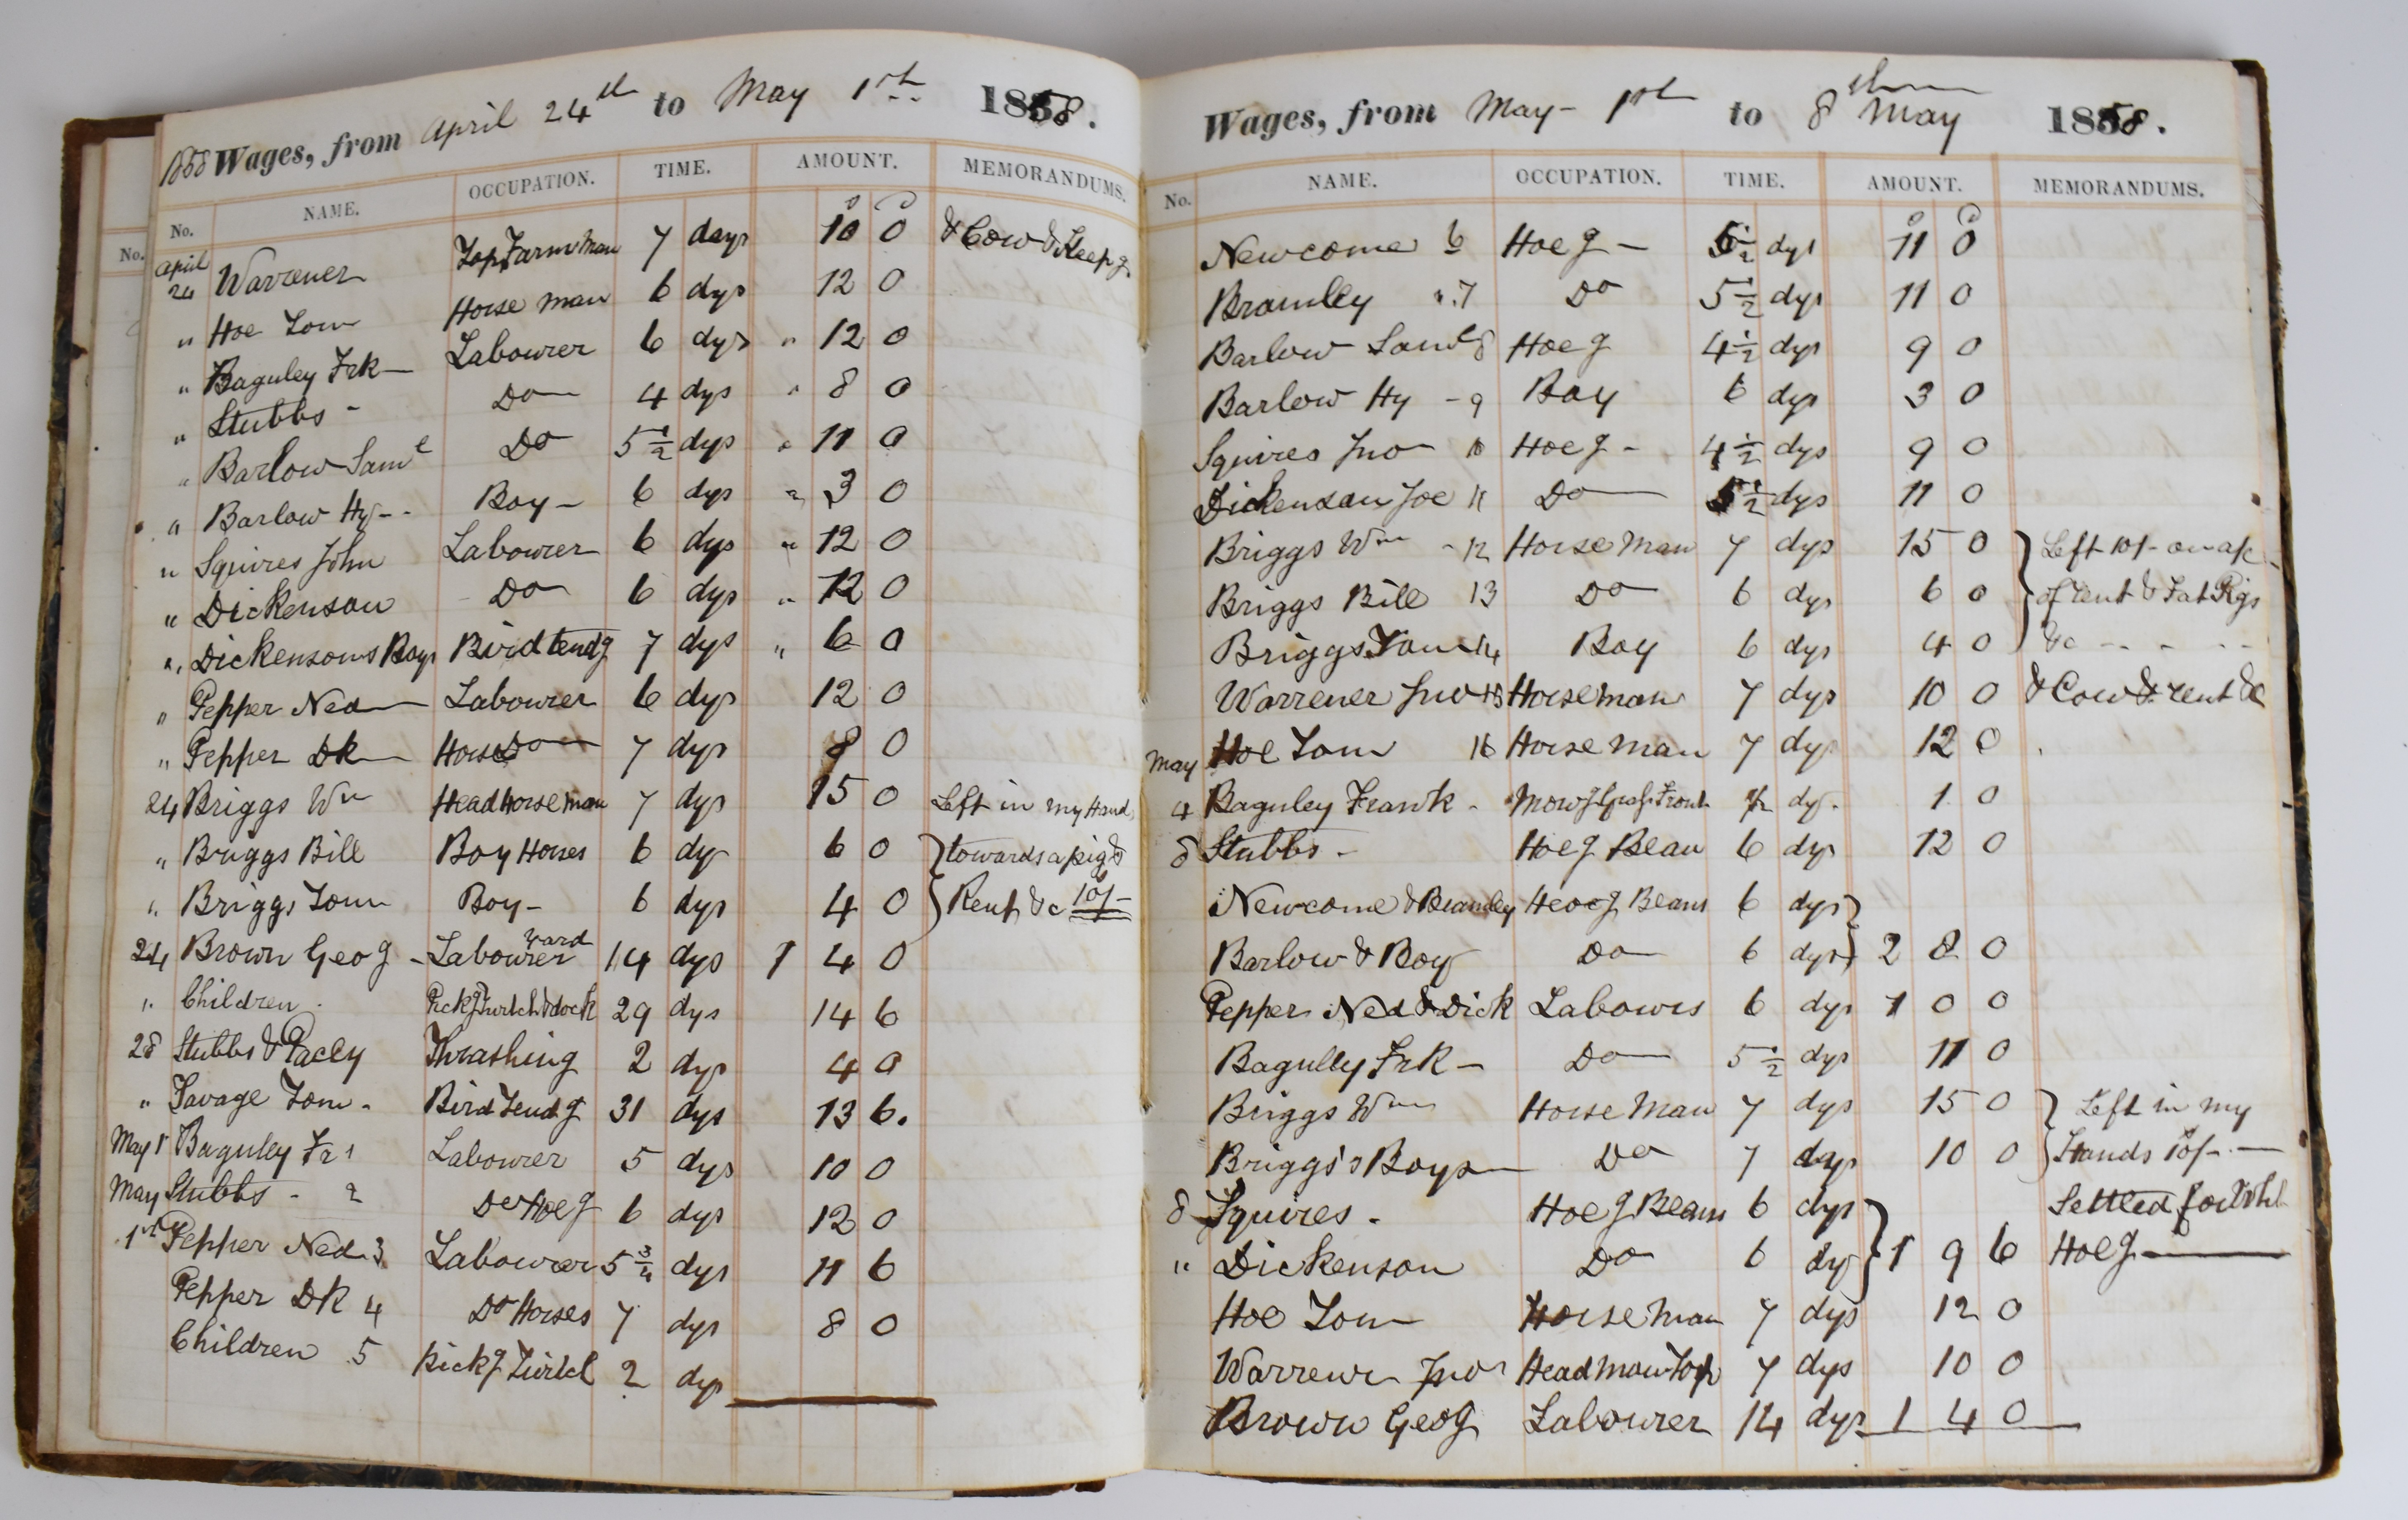 1858 Wages, from April 24th to May 1st 1858.
No. NAME. OCCUPATION. TIME. AMOUNT. MEMORANDUMS.
April 24 Warrener Top Farm Man 7 days 10 0 & Cow & Keepg
" Hoe Tom Horse man 6 dys 12 0
" Baguley Frk Labourer 6 dys " 12 0
" Stubbs - Do 4 dys " 8 0
" Barlow Saml Do 5 1/2 dys " 11 0
" Barlow Hy - - Boy - 6 dys " 3 0
" Squires John Labourer 6 dys " 12 0
" Dickenson Do 6 dys " 12 0
" Dickensons Boys Bird tendg 7 dys " 6 0
" Pepper Ned Labourer 6 dys 12 0
" Pepper Dk Horses 7 dys 8 0
24 Briggs Wm Head horse man 7 dys 15 0 Left in my Hand
" Briggs Bill Boy Horses 6 dys 6 0 towards a pig &
" Briggs Tom Boy - 6 dys 4 0 Rent &c 10/-
24 Brown Geog - Labourer Yard 14 dys 1 4 0
" Children . Pickg Twitch & dock 29 dys 14 6
28 Stubbs & Pacey Thrashing 2 dys 4 0
" Savage Tom - Bird Tendg 31 dys 13 6.
May 1 Baguley Fr 1 Labourer 5 dys 10 0
May Stubbs - 2 Do Hoeg 6 dys 12 0
1st Pepper Ned 3 Labourer 5 3/4 dys 11 6
Pepper Dk 4 Do Horses 7 dys 8 0
Children 5 pickg Twitch 2 dys
Wages, from May - 1st to 8th May 1858.
No. NAME. OCCUPATION. TIME. AMOUNT. MEMORANDUMS.
Newcome 6 Hoeg - 5 1/2 dys 11 0
Bramley " 7 Do 5 1/2 dys 11 0
Barlow Saml 8 Hoeg 4 1/2 dys 9 0
Barlow Hy - 9 Boy 6 dys 3 0
Squires Jno 10 Hoeg - 4 1/2 dys 9 0
Dickenson Joe 11 Do 5 1/2 dys 11 0
Briggs Wm - 12 Horse Man 7 dys 15 0 Left 10/- on a/c
Briggs Bill 13 Do 6 dys 6 0 of rent & Fat Pigs
Briggs Tom 14 Boy 6 dys 4 0 &c - - - - -
Warrener Jno 15 Horseman 7 dys 10 0 & Cow & rent &c
May Hoe Tom 16 Horse man 7 dys 12 0
4 Baguley Frank - Mowg Grass Front 1/2 dy. 1 0
8 Stubbs - Hoeg Bean 6 dys 12 0
Newcome & Bramley Hoeg Beans 6 dys
Barlow & Boy Do 6 dys 2 8 0
Pepper Ned & Dick Labours 6 dys 1 0 0
Bagulley Frk - Do 5 1/2 dys 11 0
Briggs Wm Horse Man 7 dys 15 0 Left in my
Briggs's Boys Do 7 days 10 0 Hands 10/- -
8 Squires . Hoeg Beans 6 dys Settled for
" Dickenson Do 6 dy 1 9 6 Hoeg
Hoe Tom Horse man 7 dys 12 0
Warrener Jno Head man Top 7 dys 10 0
Brown Geog Labourer 14 dys 1 4 0